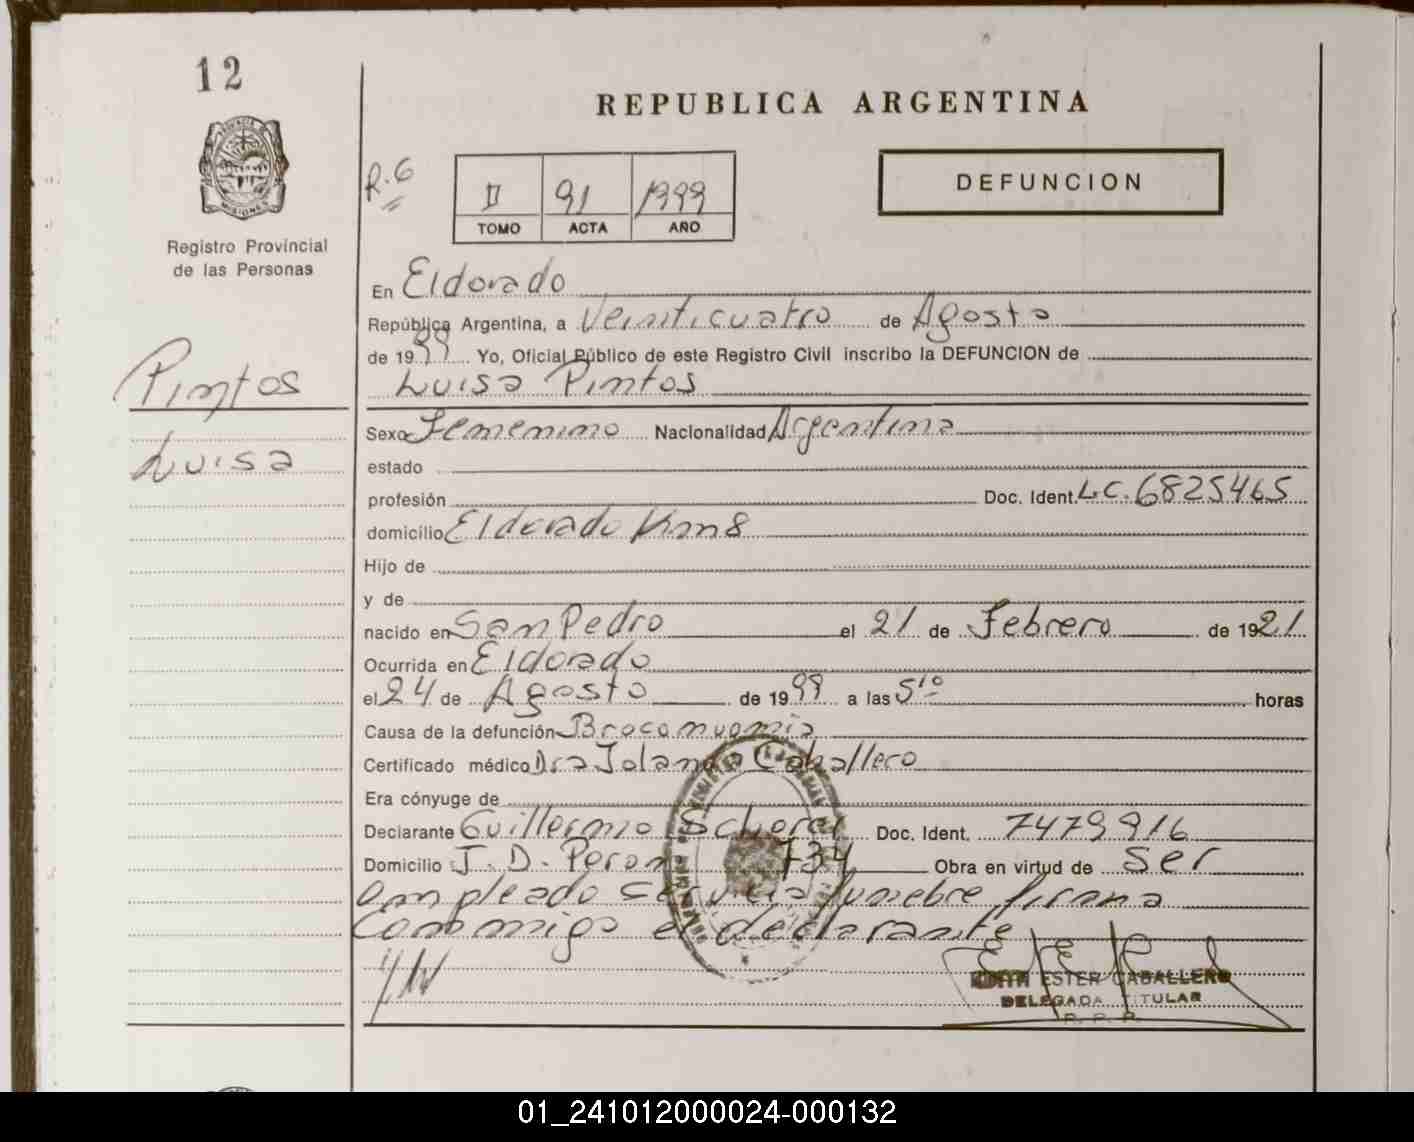 12
REPUBLICA ARGENTINA
PROVINCIA DE MISIONES
R.G
II 91 1999
TOMO ACTA AÑO
DEFUNCION
Registro Provincial
de las Personas
En Eldorado
República Argentina, a Veinticuatro de Agosto
de 1999 Yo, Oficial Público de este Registro Civil inscribo la DEFUNCION de
Luisa Pintos
Pintos
Luisa
Sexo Femenino Nacionalidad Argentina
estado
profesión Doc. Ident. L.C. 6825465
domicilio Eldorado Km8
Hijo de
y de
nacido en San Pedro el 21 de Febrero de 1921
Ocurrida en Eldorado
el 24 de Agosto de 1999 a las 5 10 horas
Causa de la defunción Broconuomia
Certificado médico Dra Jolanda Caballero
Era cónyuge de
Declarante Guillermo Doc. Ident. 7479916
Domicilio J. D. Peron 734 Obra en virtud de ser
ampleado servicio funebre firma
Conmigo el declarante
EDITH ESTER CABALLERO
DELEGADA TITULAR
R. P. P.
01_241012000024-000132